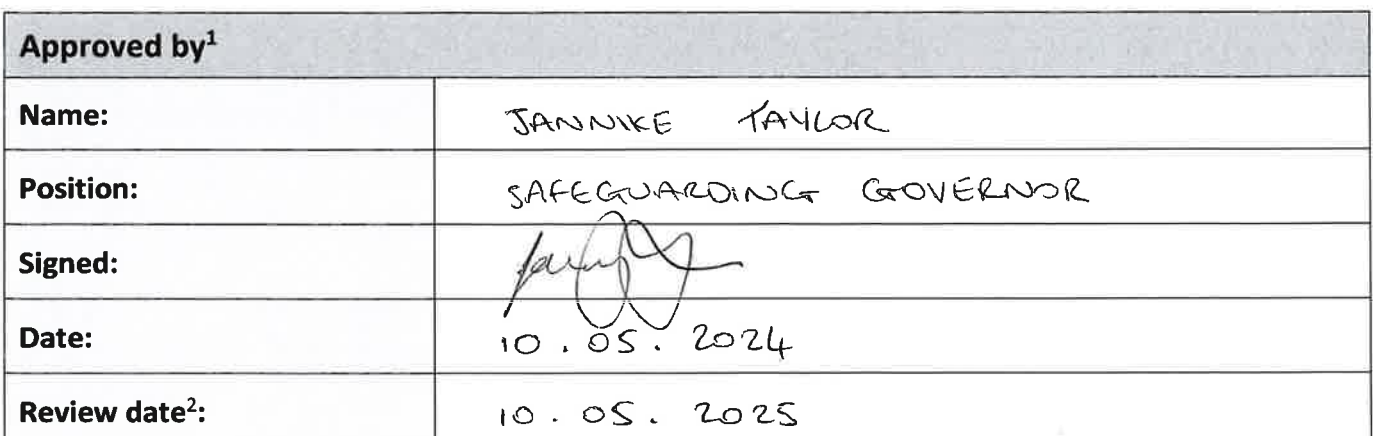 Approved by¹
Name: JANNIKE TAYLOR
Position: SAFEGUARDING GOVERNOR
Signed:
Date: 10.05.2024
Review date²: 10.05.2025